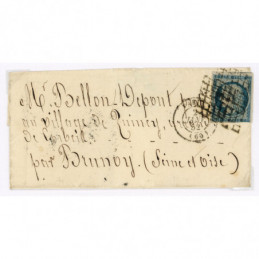 Mr. Bellon-Depont
au village de Quincy,
de Corbeil
par Brunoy. (Seine et Oise)